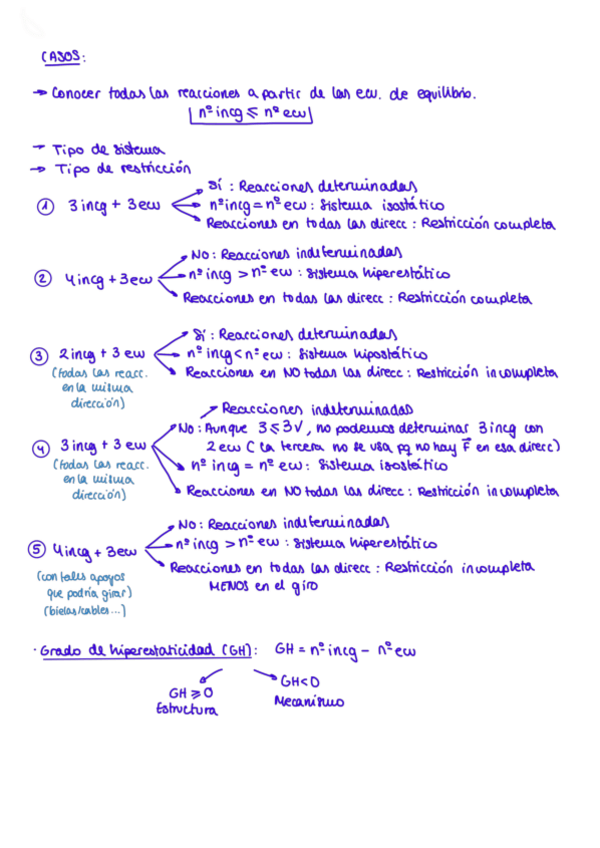 CASOS:
→ Conocer todas las reacciones a partir de las ecu. de equilibrio.
nº incg ⩽ nº ecu
→ Tipo de sistema
→ Tipo de restricción
Sí : Reacciones determinadas
① 3 incg + 3 ecu nº incg = nº ecu : Sistema isostático
Reacciones en todas las direcc : Restricción completa
NO : Reacciones indeterminadas
② 4 incg + 3 ecu nº incg > nº ecu : Sistema hiperestático
Reacciones en todas las direcc : Restricción completa
Sí : Reacciones determinadas
③ 2 incg + 3 ecu nº incg < nº ecu : Sistema hipostático
(todas las reacc. Reacciones en NO todas las direcc : Restricción incompleta
en la misma
dirección)
Reacciones indeterminadas
NO : Aunque 3 ⩽ 3 √, no podemos determinar 3 incg con
④ 3 incg + 3 ecu 2 ecu ( la tercera no se usa pq no hay F⃗ en esa direcc)
(todas las reacc. nº incg = nº ecu : Sistema isostático
en la misma
dirección) Reacciones en NO todas las direcc : Restricción incompleta
NO : Reacciones indeterminadas
⑤ 4 incg + 3 ecu nº incg > nº ecu : Sistema hiperestático
(con tales apoyos Reacciones en todas las direcc : Restricción incompleta
que podría girar) MENOS en el giro
(bielas/cables...)
· Grado de hiperestaticidad (GH): GH = nº incg - nº ecu
GH ⩾ 0 GH < 0
Estructura Mecanismo